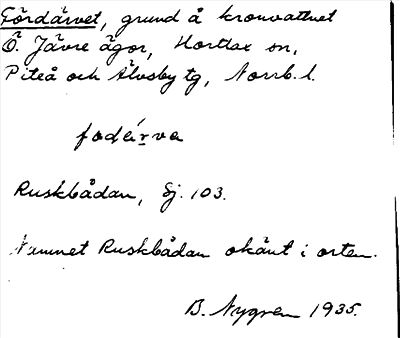 Fördärvet, grund å kronvattnet
Ö. Jävre ägor, Hortlax sn,
Piteå och Älvsby tg, Norrb. l.
fodärva
Ruskbådan, Sj. 103.
Namnet Ruskbådan okänt i orten.
B. Nygren 1935.